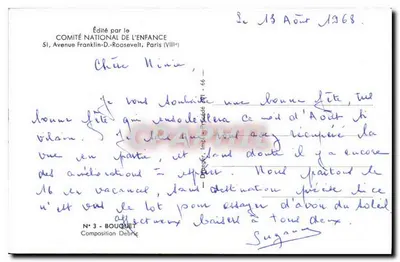 Edité par le
COMITÉ NATIONAL DE L'ENFANCE
51, Avenue Franklin-D.-Roosevelt, Paris (VIIIe)
Le 13 Août 1968
Chère Minie,
Je vous souhaite une bonne fête, une
bonne fête qui ce mois d'Août si
vilain. Je que vous avez récupéré la
vue en partie, et sans doute il y a encore
des améliorations à espérer. Nous partons le
16 en vacances, sans destination précise si ce
n'est vers le lot pour essayer d'avoir du soleil
affectueux baisers à tous deux.
Suzanne
N° 3 - BOUQUET
Composition Debrie